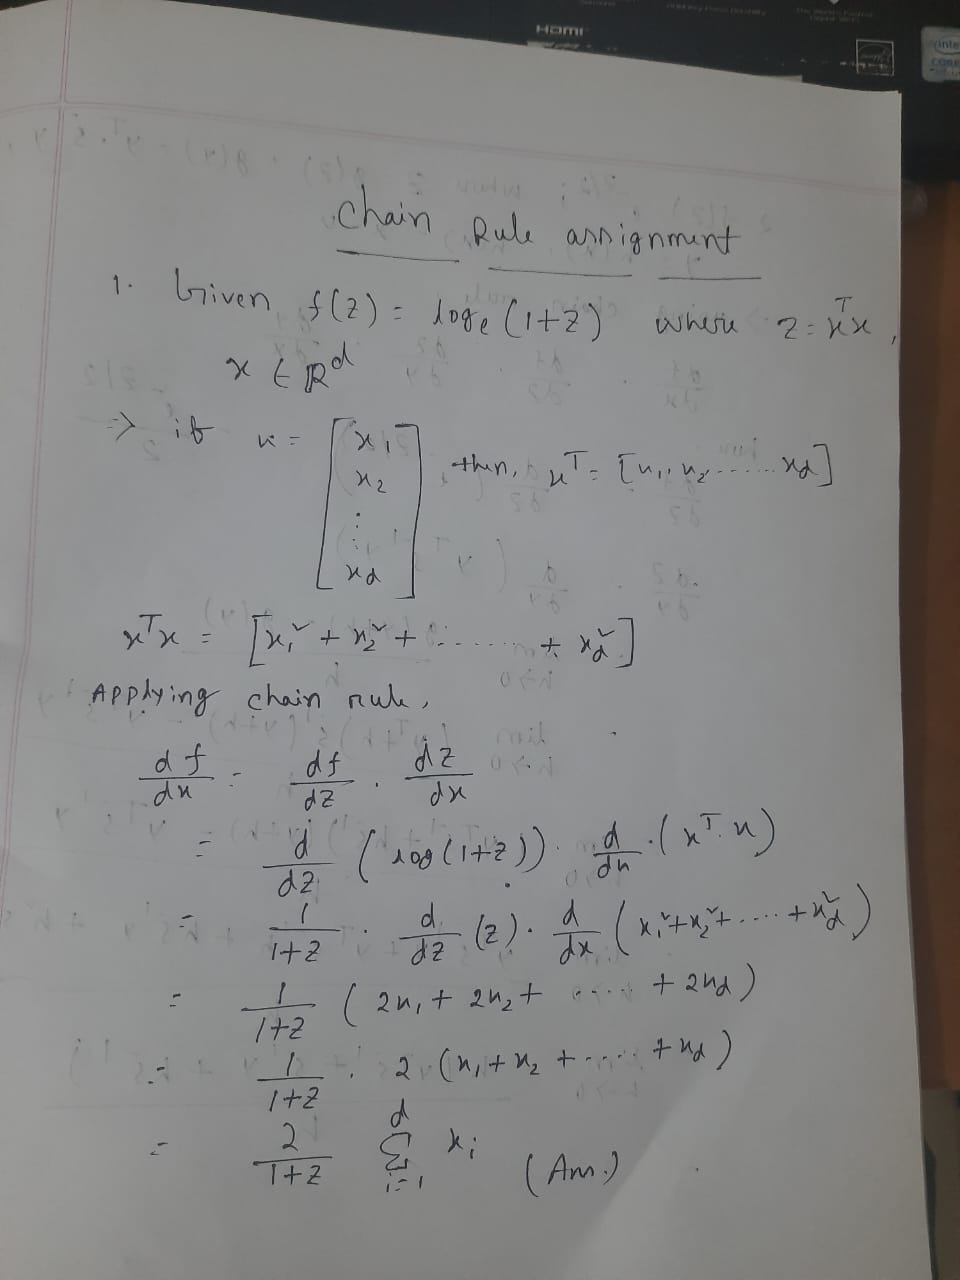 HDMI
inte
CORE
Chain Rule assignment
1. Given f(z) = logₑ(1+z) where z = xᵀx,
x ∈ ℝᵈ
⇒ if x = [x₁ x₂ ⋮ x_d] then, xᵀ = [x₁, x₂ ...... x_d]
xᵀx = [x₁² + x₂² + ....... + x_d²]
Applying chain rule,
df/dx = df/dz . dz/dx
= d/dz (log(1+z)) . d/dx .(xᵀ. x)
= 1/1+z . d/dz (z) . d/dx (x₁²+x₂²+....+x_d²)
= 1/1+z (2x₁ + 2x₂ + ..... + 2x_d)
= 1/1+z . 2 (x₁ + x₂ + ..... + x_d)
= 2/1+z d Σ i=1 xᵢ (Ans.)